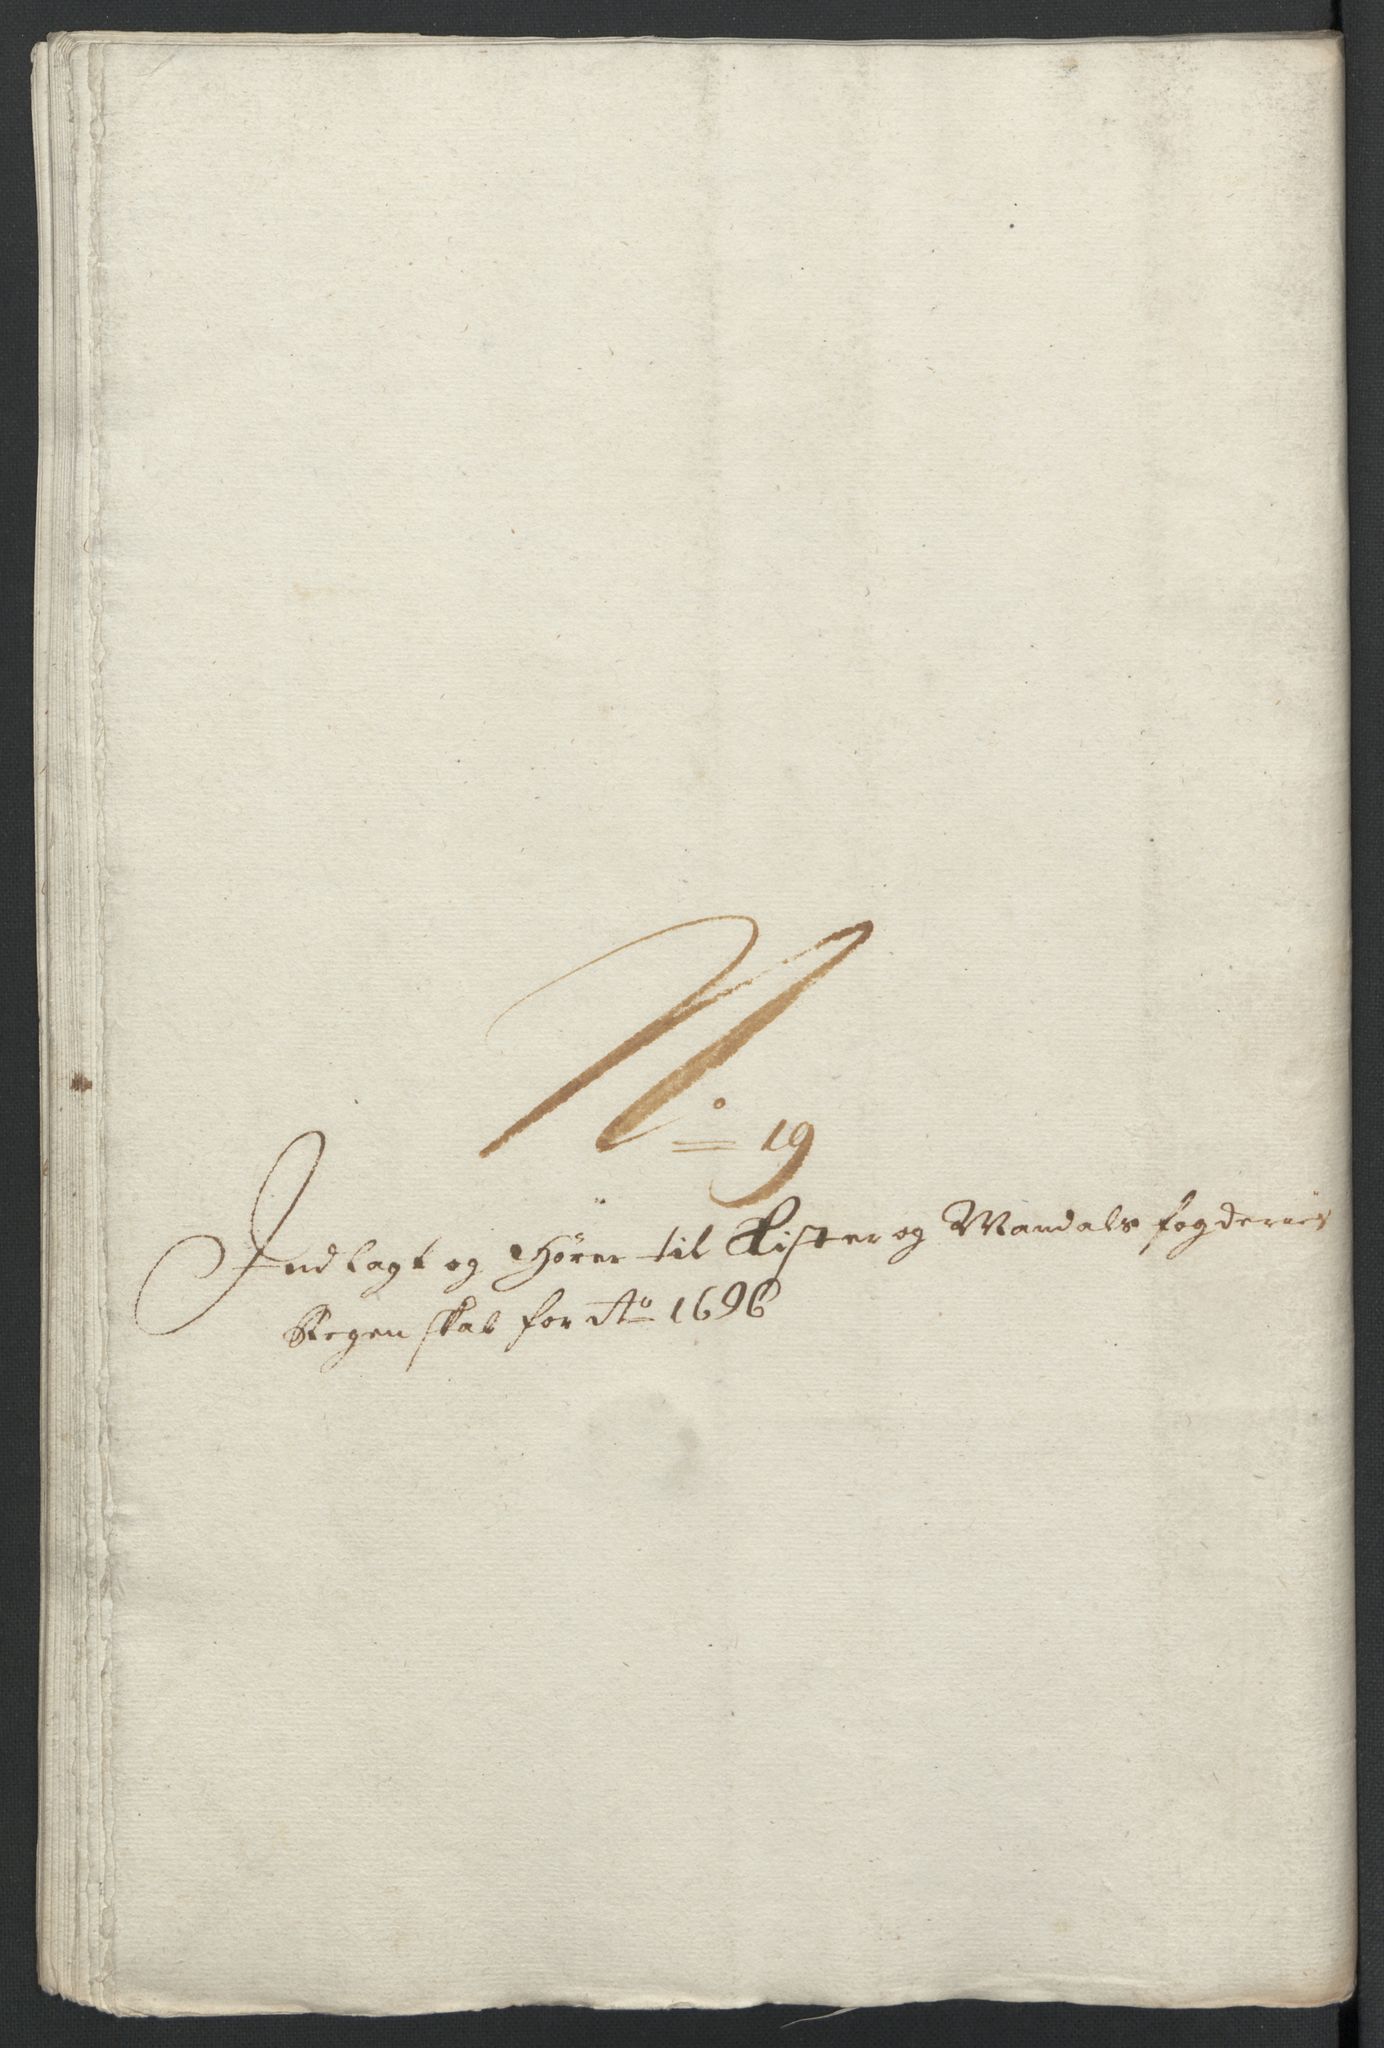 No 19
Indlagt og Hörer til Lister og Mandals fogderies
Regenskab for Ao 1696